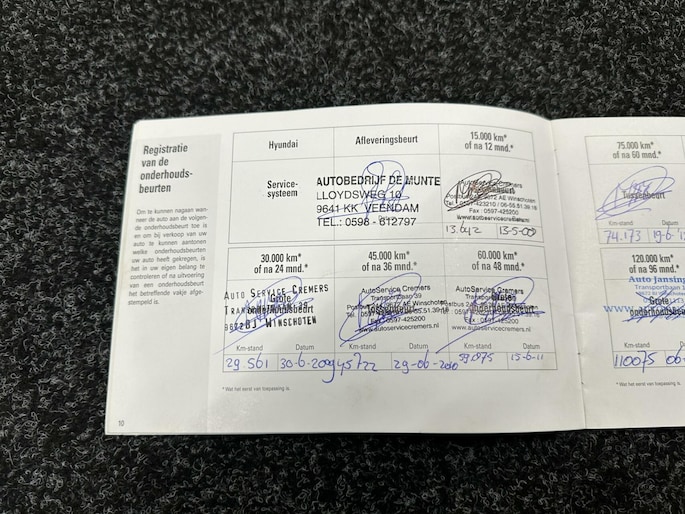 Registratie
van de
onderhouds-
beurten
Om te kunnen nagaan wan-
neer de auto aan de volgen-
de onderhoudsbeurt toe is
en om bij verkoop van uw
auto te kunnen aantonen
welke onderhoudsbeurt uw
auto heeft gekregen, is het
in uw eigen belang te
controleren of na uitvoering
van een onderhoudsbeurt
het betreffende vakje afge-
stempeld is.
10
Hyundai
Afleveringsbeurt
15.000 km*
of na 12 mnd.*
Service-
systeem
AUTOBEDRIJF DE MUNTE
LLOYDSWEG 10
9641 KK VEENDAM
TEL.: 0598 - 612797
AutoService Cremers
Fax : 0597-425200
www.autoservicecremers.nl
13.642
30.000 km*
of na 24 mnd.*
AUTO SERVICE CREMERS
Grote
onderhoudsbeurt
WINSCHOTEN
Km-stand Datum
29 561 30-6-2009
45.000 km*
of na 36 mnd.*
AutoService Cremers
Transportbaan 39
www.autoservicecremers.nl
Km-stand Datum
45722 29-06-2010
60.000 km*
of na 48 mnd.*
AutoService Cremers
Transportbaan 39
Grote
onderhoudsbeurt
www.autoservicecremers.nl
Km-stand Datum
59.875 15-6-11
* Wat het eerst van toepassing is.
75.000 km*
of na 60 mnd.*
Tussenbeurt
Km-stand Datum
74.173
120.000 km*
of na 96 mnd.*
Auto Jansing
Transportbaan
Grote
onderhoudsbeurt
Km-stand Datum
110075
* Wat het eerst van toepassing is.